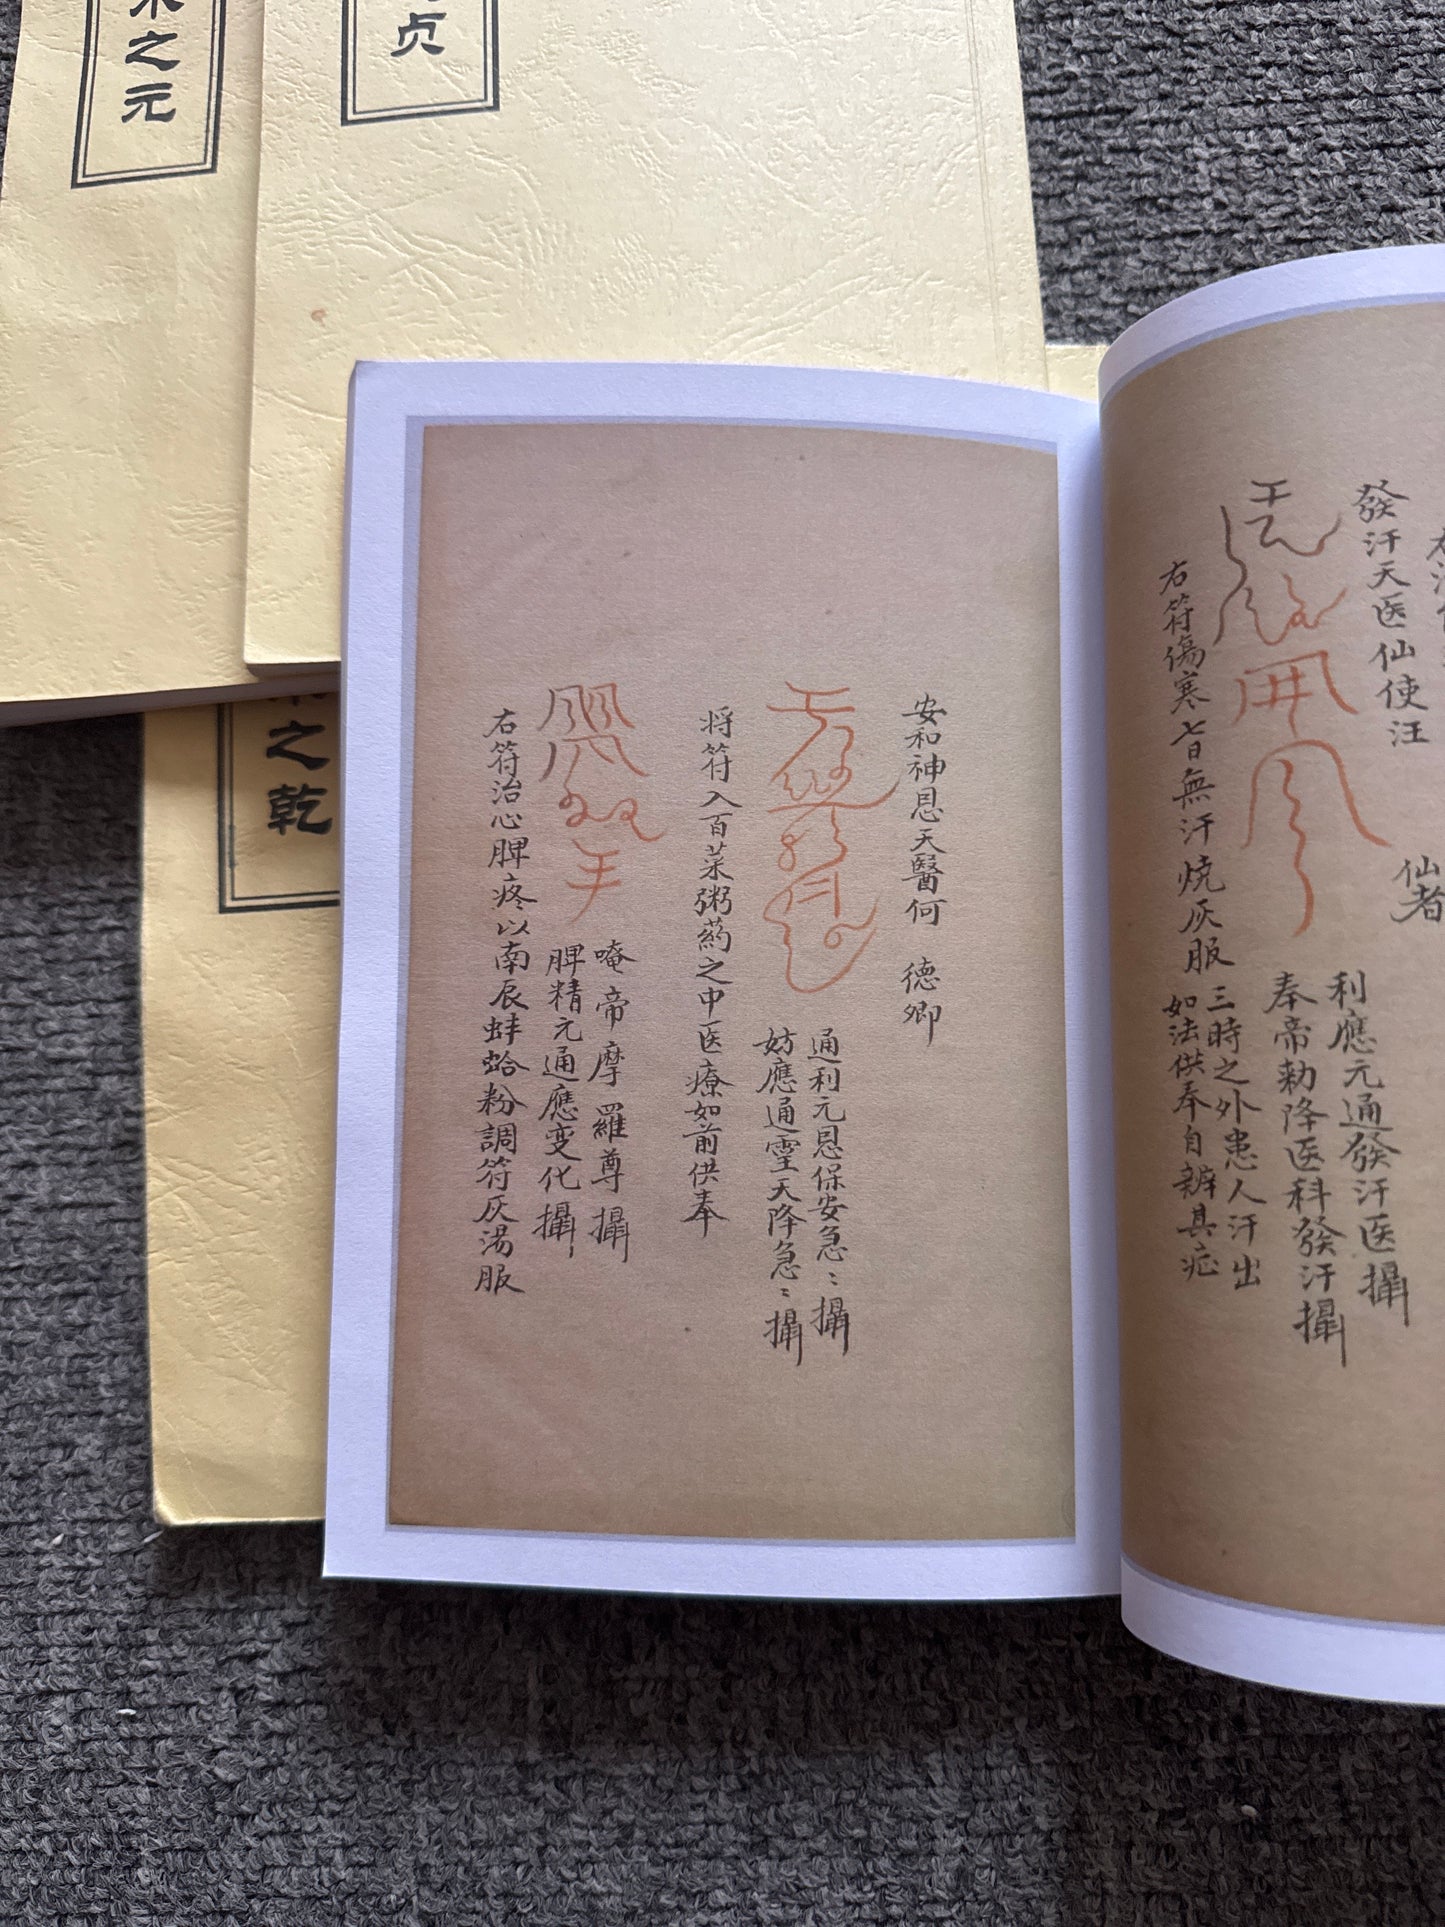 之元
贞
之乾
發汗天医仙使汪
仙者
利應元通發汗医攝
奉帝勅降医科發汗攝
右符傷寒七日無汗燒灰服
三時之外患人汗出
如法供奉自辨其疕
安和神恩天醫何 德卿
通利元恩保安急〻攝
妨應通霊天降急〻攝
将符入百菜粥药之中医療如前供奉
唵帝摩羅尊攝
脾精元通應变化攝
右符治心脾疼以南辰蚌蛤粉調符灰湯服